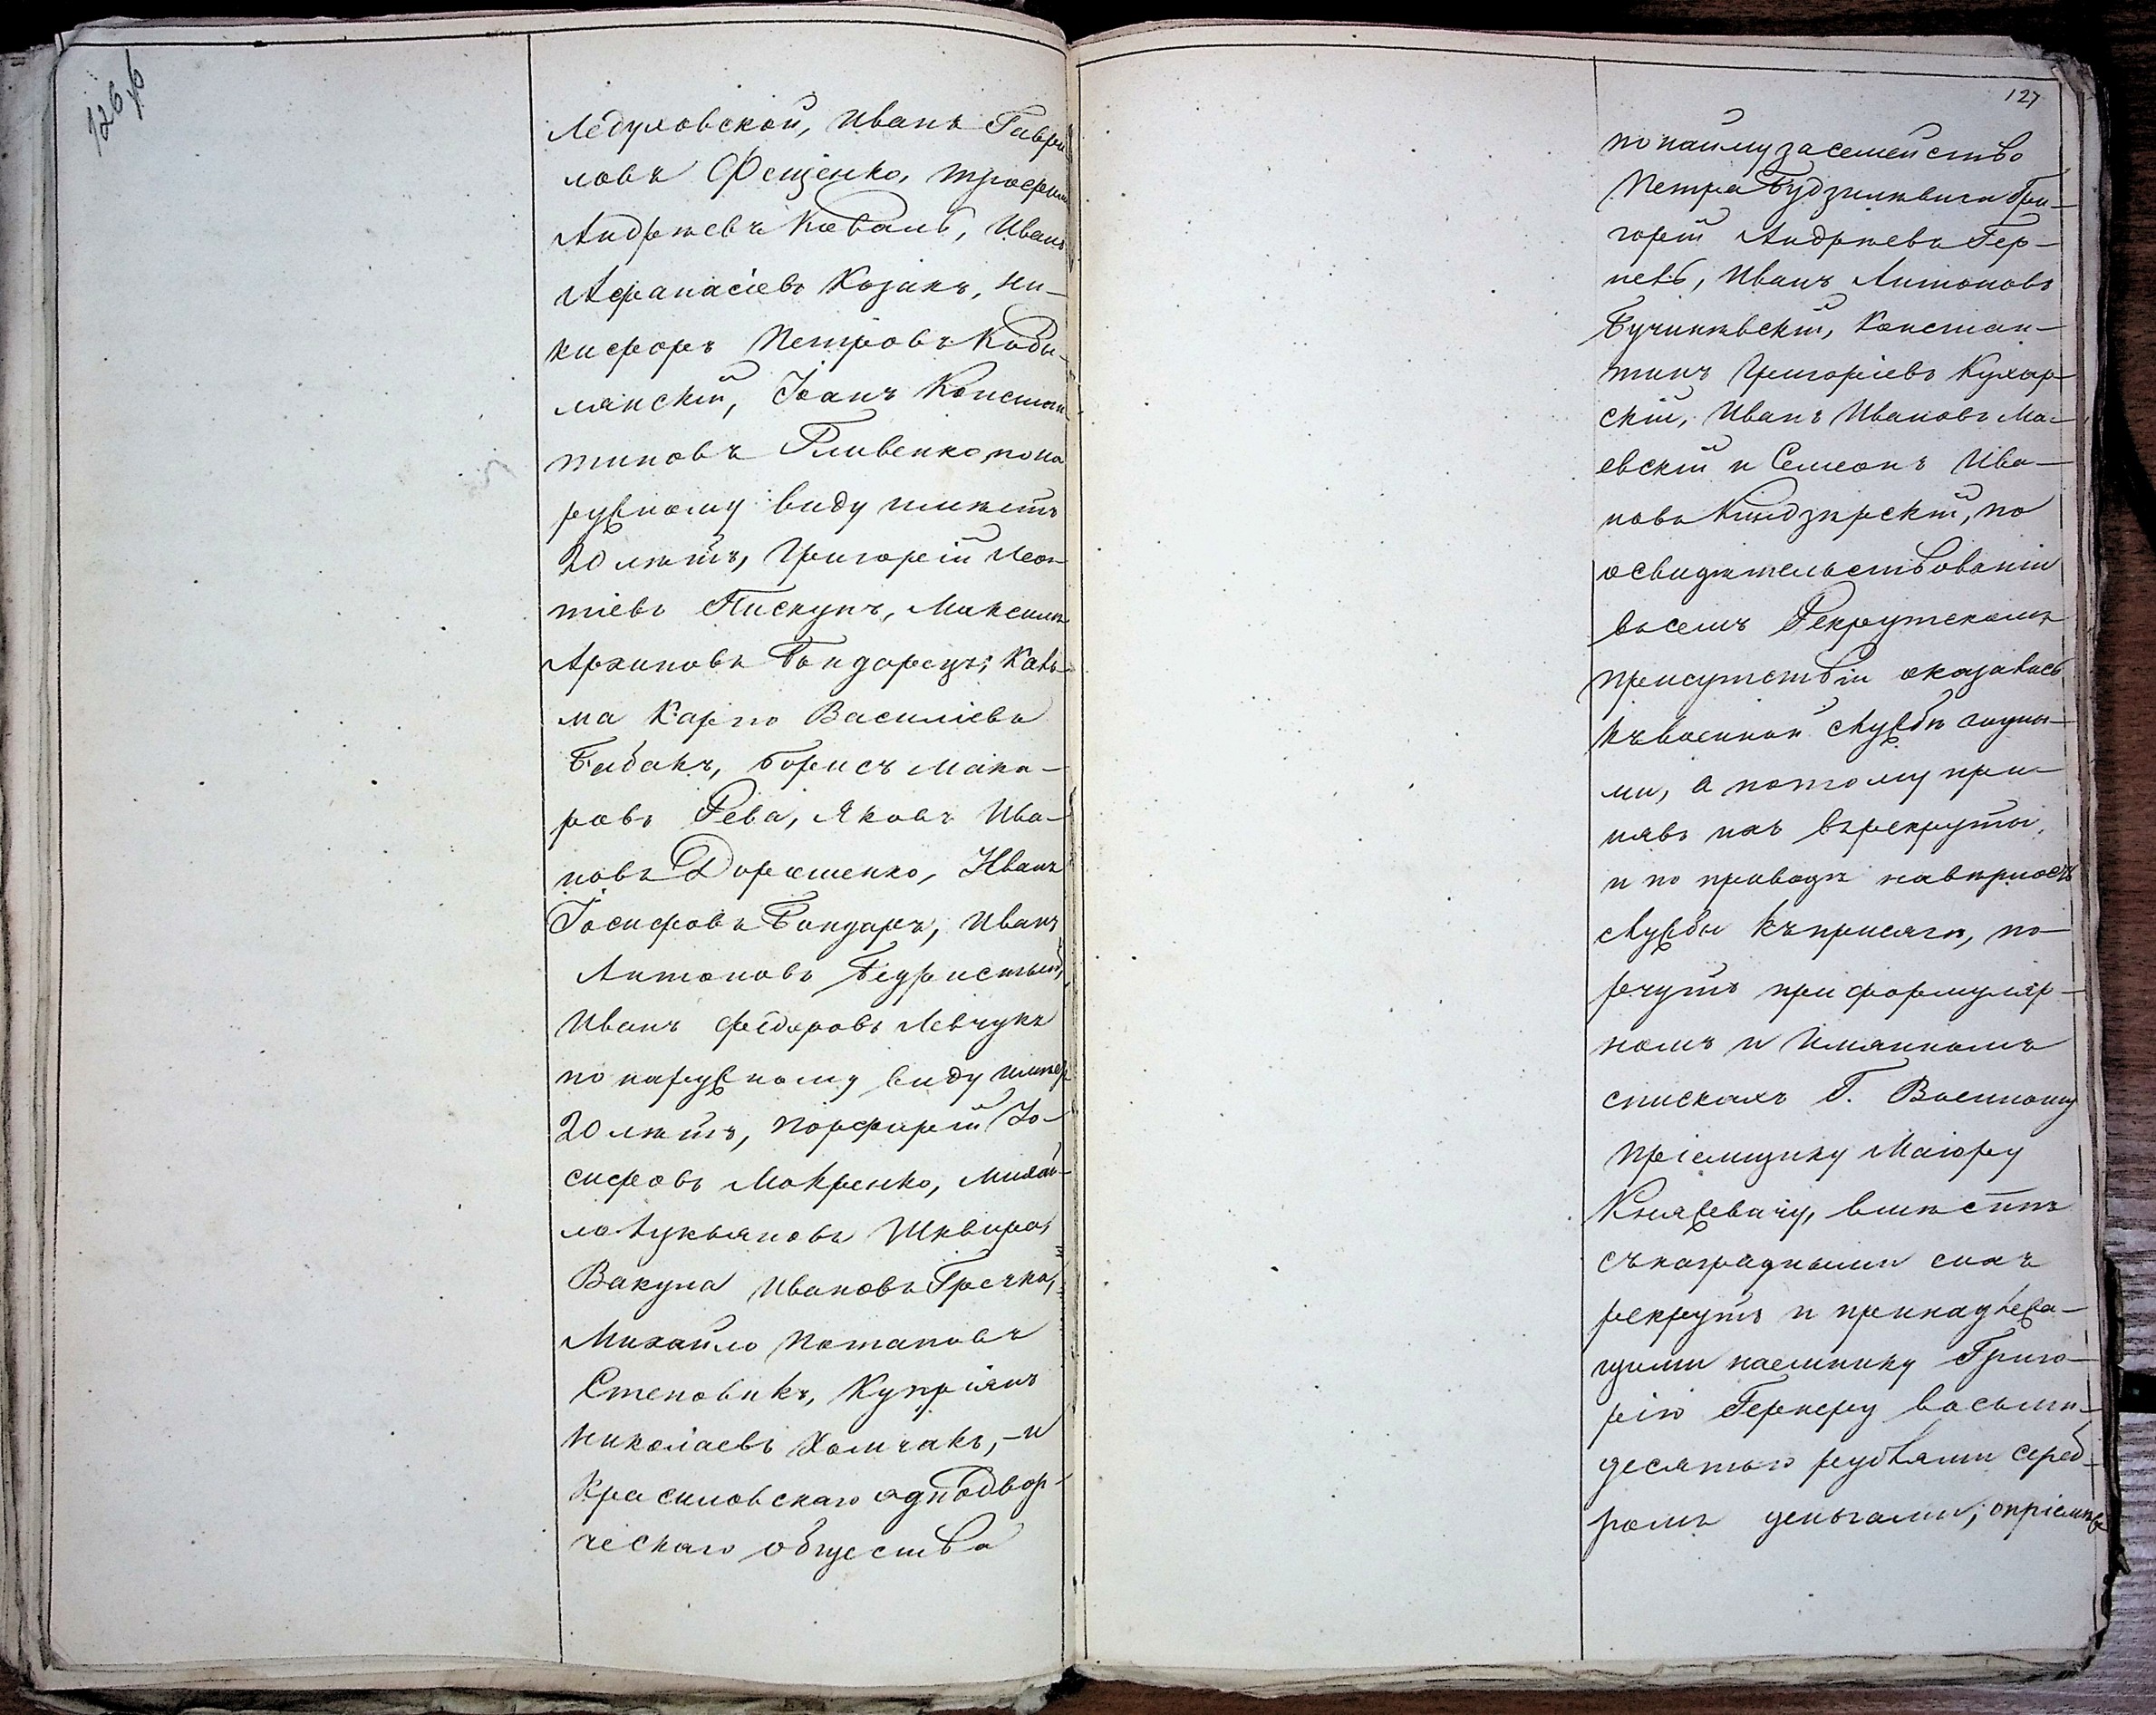 126 об
Ледуховской, Иванъ Гаври
ловъ Фещенко, Трофим
Андреевъ Коваль, Иванъ
Афанасіевъ Козакъ, Ни-
кифоръ Петровъ Кобы-
лянскій, Іоанъ Констан
тиновъ Гливенко, по на
ружному виду имѣетъ
20 лѣтъ, Григорій Леон
тіевъ Пискунъ, Максимъ
Архиповъ Бондарецъ, Кась-
ма Карпо Василіевъ
Бабакъ, Борисъ Мака-
ровъ Рева, Яковъ Ива-
новъ Дорошенко, Иванъ
Іосифовъ Бондаръ, Иванъ
Антоновъ
Иванъ Федоровъ Левчукъ
по наружному виду имѣе
20 лѣтъ, Порфирій Іо-
сифовъ Мокренко, Михай-
ло Лукьяновъ Шквира,
Вакула Ивановъ Гречка,
Михайло Потаповъ
Степовикъ, Купріянъ
Николаевъ Хомчакъ, - и
Красиловскаго однодвор-
ческаго общества
127
по найму за семейство
Петра Будзинѣвича Гри-
горій Андрѣевъ Гер-
нетъ, Иванъ Антоновъ
Бучинѣвскій, Констан-
тинъ Григоріевъ Кухар-
скій, Иванъ Ивановъ Ма-
евскій и Семеонъ Ива-
новъ по
освидѣтельствованіи
въ семъ Рекрутскомъ
присутствіи оказались
къ военной службѣ годны-
ми, а потому при-
нявъ ихъ въ рекруты,
и по приводѣ на вѣрность
службы къ присягѣ, по-
ручить при формуляр-
номъ и Имянномъ
спискахъ Г. Военному
Пріемщику Маіору
Княжевичу, вмѣстѣ
съ наградными сихъ
рекрутъ и принадлежа-
щими наемнику Григо-
рію Гернеру восьми-
десятью рублями сереб-
ромъ деньгами; о пріемѣ